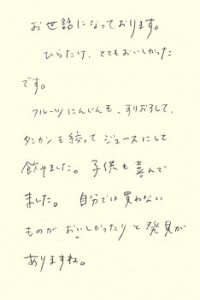 お世話になっております。
ひらたけ、とてもおいしかった
です。
フルーツにんじんも、すりおろして、
タンカンも絞ってジュースにして
飲みました。子供も喜んで
ました。自分では買わない
ものがおいしかったりと発見が
ありますね。